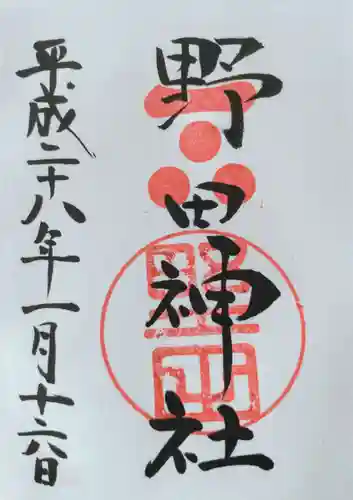 野田神社
平成二十八年一月十六日
野田